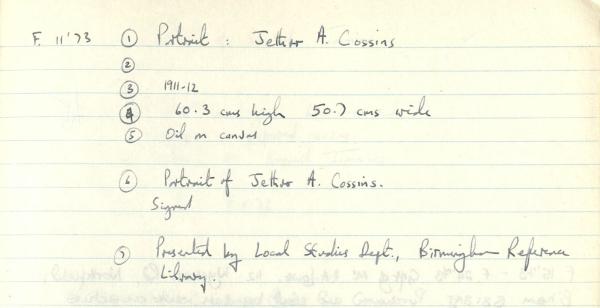 F. 11'73 ① Portrait : Jethro A. Cossins
②
③ 1911-12
④ 60.3 cms high 50.7 cms wide
⑤ Oil on canvas
⑥ Portrait of Jethro A. Cossins.
Signed
⑦ Presented by Local Studies Dept., Birmingham Reference
Library.